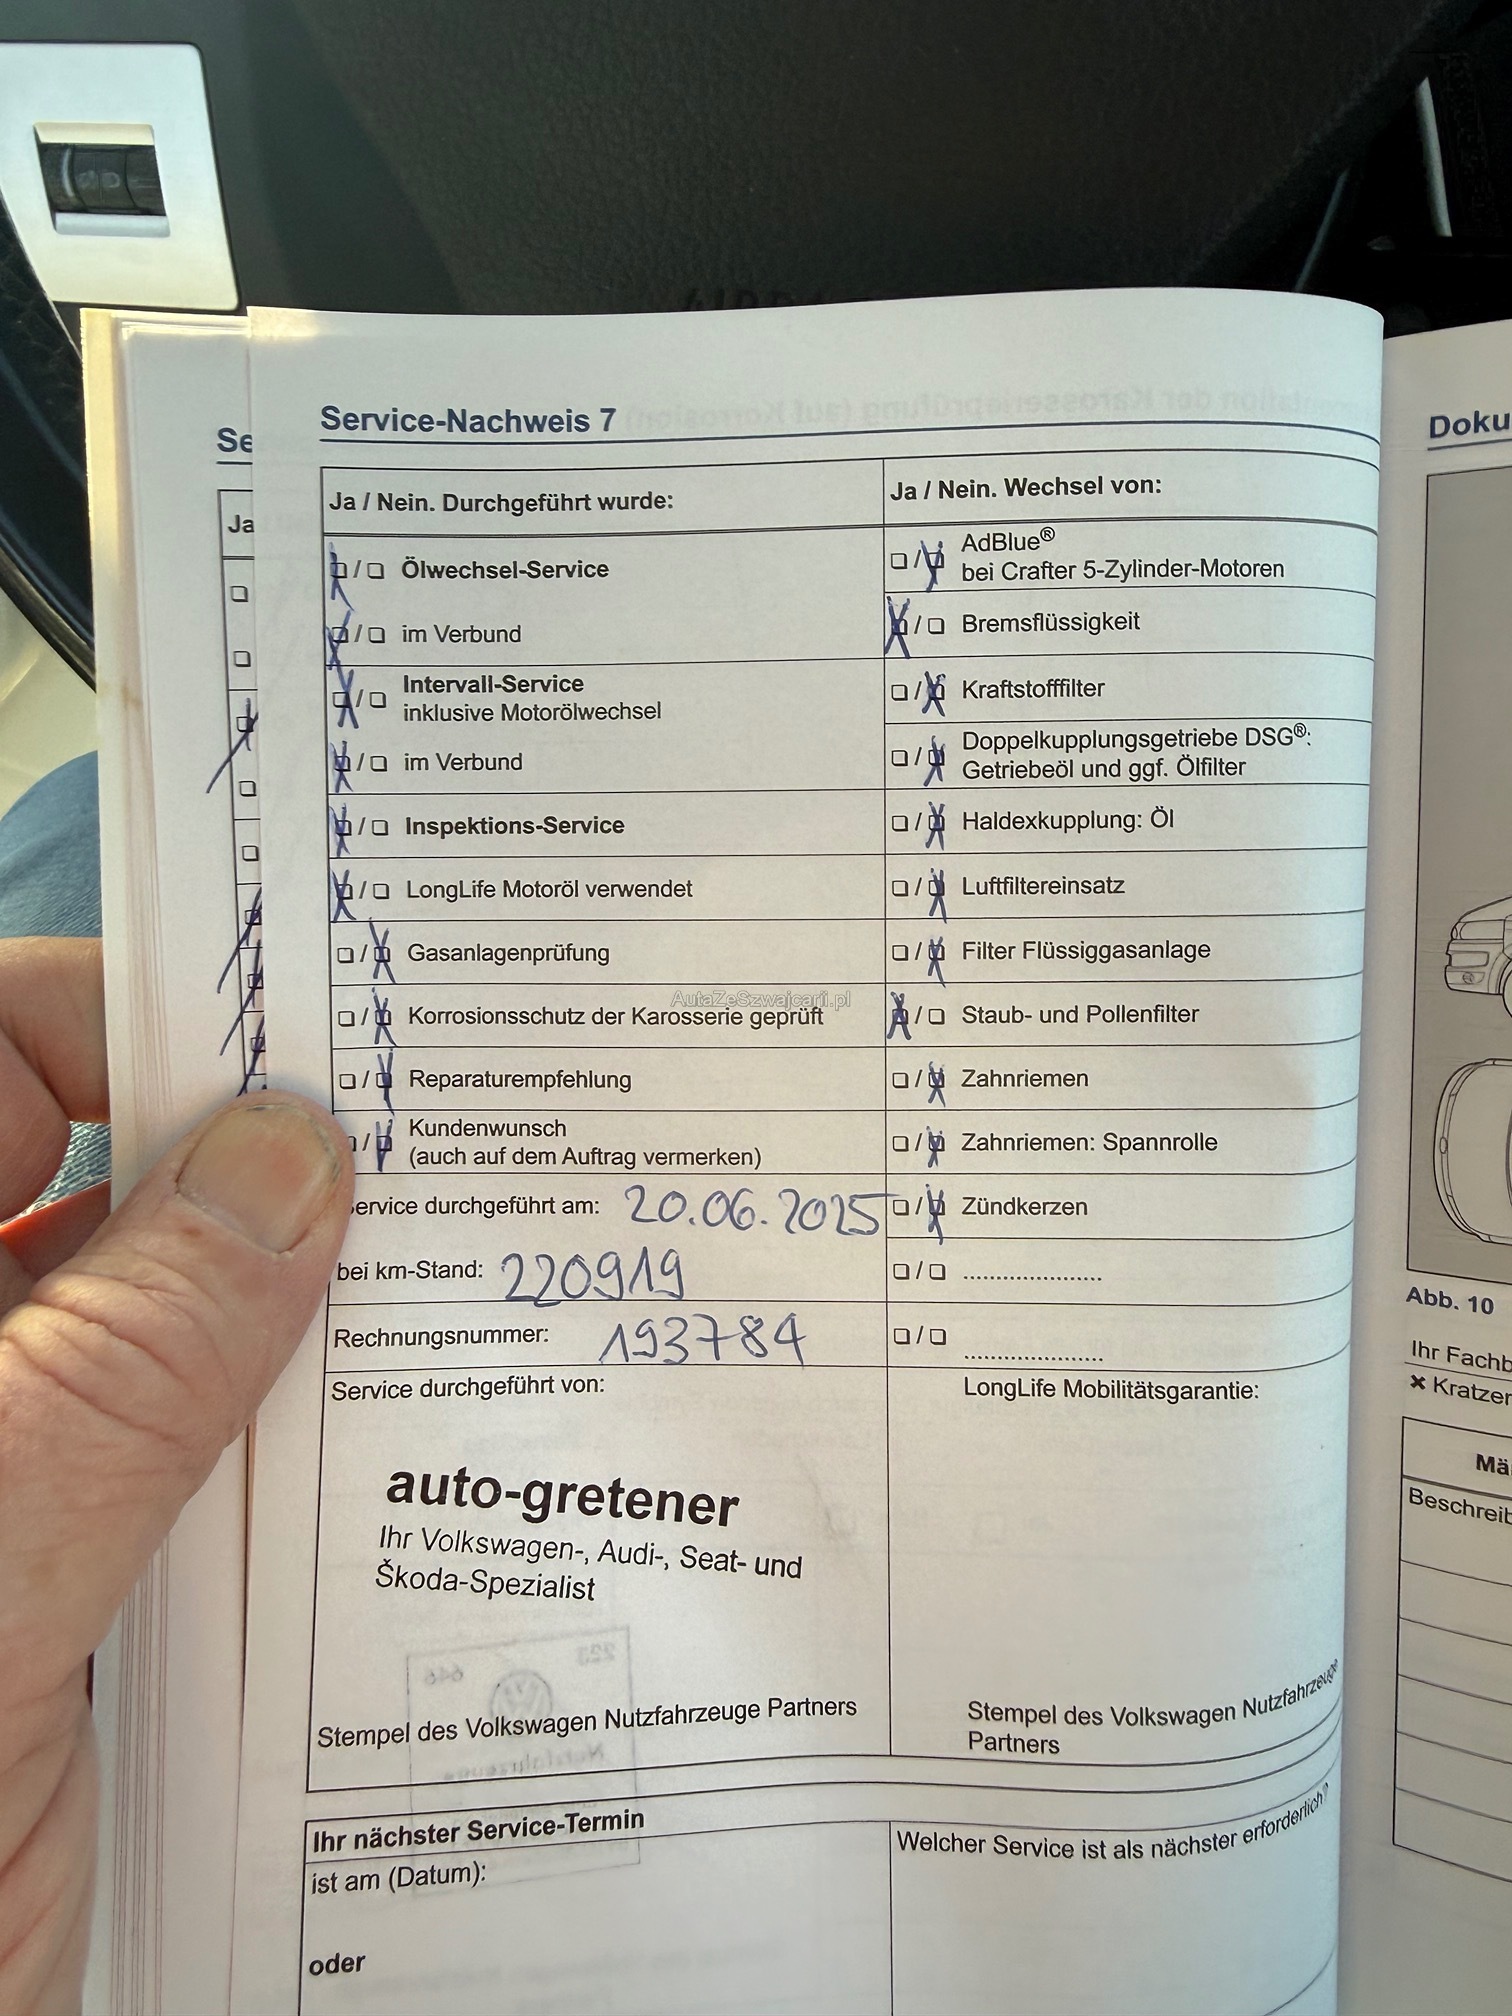 Service-Nachweis 7
Ja / Nein. Durchgeführt wurde:
Ölwechsel-Service
im Verbund
Intervall-Service
inklusive Motorölwechsel
im Verbund
Inspektions-Service
LongLife Motoröl verwendet
Gasanlagenprüfung
Korrosionsschutz der Karosserie geprüft
Reparaturempfehlung
Kundenwunsch
(auch auf dem Auftrag vermerken)
ervice durchgeführt am: 20.06.2025
bei km-Stand: 220919
Rechnungsnummer: 193784
Service durchgeführt von:
auto-gretener
Ihr Volkswagen-, Audi-, Seat- und
Škoda-Spezialist
Stempel des Volkswagen Nutzfahrzeuge Partners
Ja / Nein. Wechsel von:
AdBlue®
bei Crafter 5-Zylinder-Motoren
Bremsflüssigkeit
Kraftstofffilter
Doppelkupplungsgetriebe DSG®:
Getriebeöl und ggf. Ölfilter
Haldexkupplung: Öl
Luftfiltereinsatz
Filter Flüssiggasanlage
Staub- und Pollenfilter
Zahnriemen
Zahnriemen: Spannrolle
Zündkerzen
LongLife Mobilitätsgarantie:
Stempel des Volkswagen Nutzfahrzeuge
Partners
Ihr nächster Service-Termin
ist am (Datum):
oder
Welcher Service ist als nächster erforderlich?
AutaZeSzwajcarii.pl
Se
Ja
Doku
Abb. 10
Ihr Fachb
× Kratzer
Mä
Beschreib